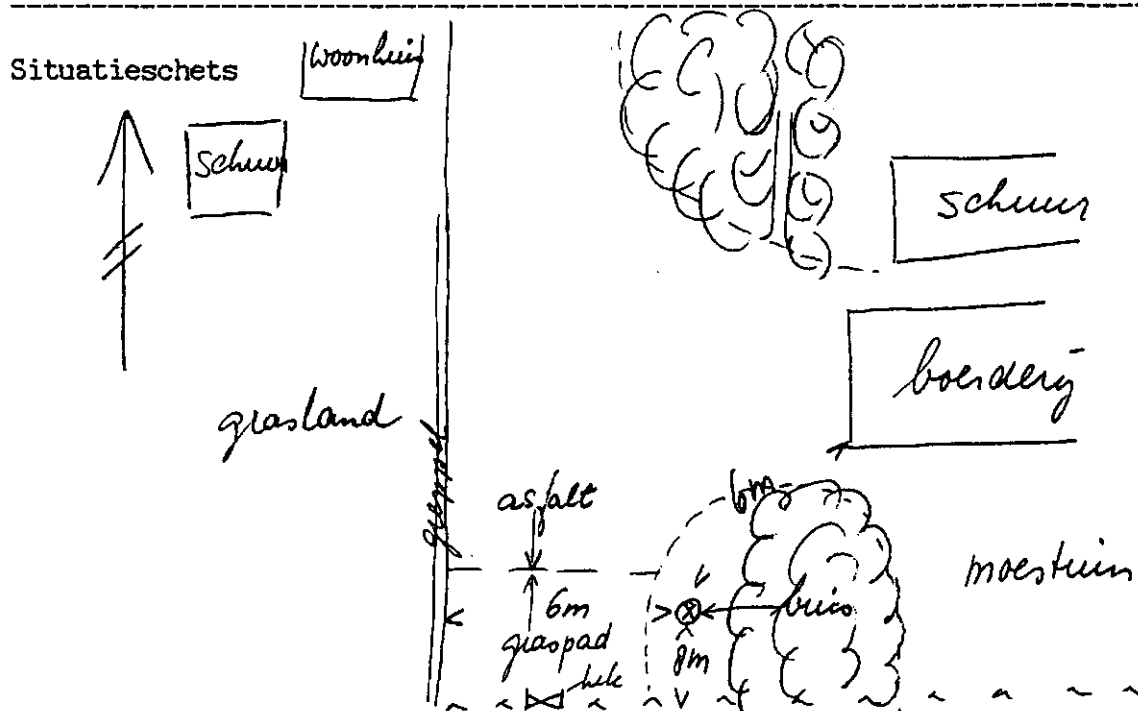 Situatieschets
woonhuis
schuur
schuur
boerderij
grasland
greppel
asfalt
6m
6m
graspad
buis
8m
hek
moestuin